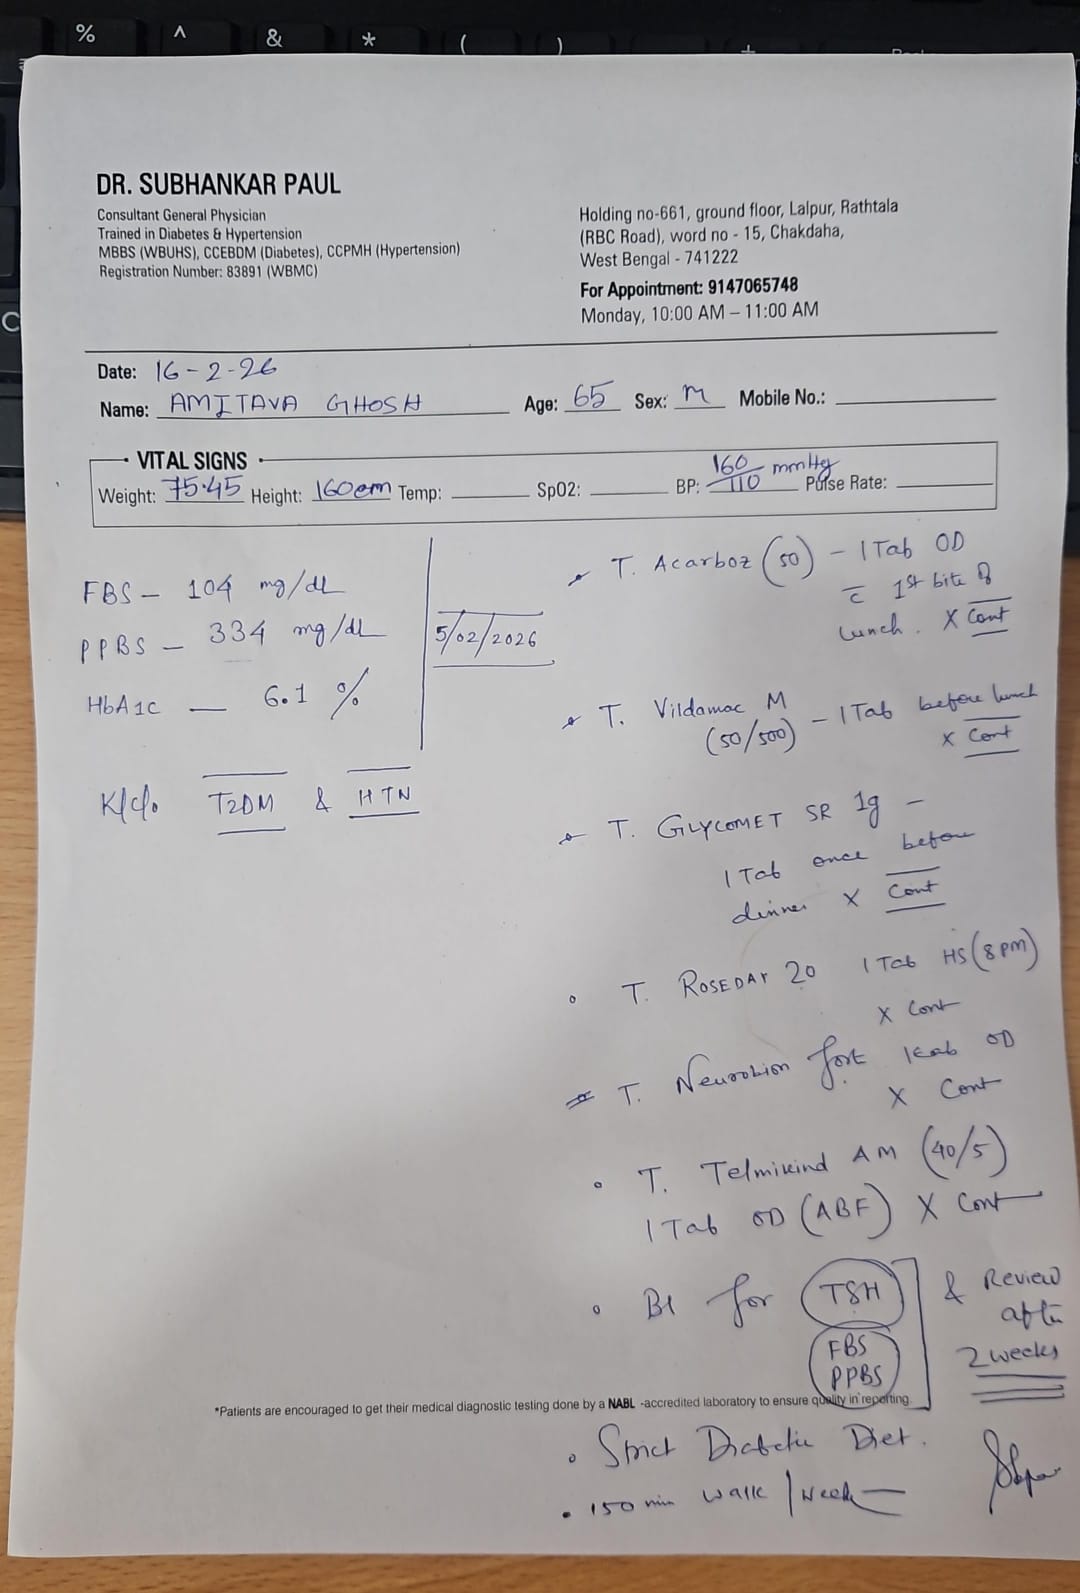 % ^ & * ( )
DR. SUBHANKAR PAUL
Consultant General Physician
Trained in Diabetes & Hypertension
MBBS (WBUHS), CCEBDM (Diabetes), CCPMH (Hypertension)
Registration Number: 83891 (WBMC)
Holding no-661, ground floor, Lalpur, Rathtala
(RBC Road), word no - 15, Chakdaha,
West Bengal - 741222
For Appointment: 9147065748
Monday, 10:00 AM – 11:00 AM
Date: 16-2-26
Name: AMITAVA GHOSH Age: 65 Sex: M Mobile No.:
VITAL SIGNS
Weight: 75.45 Height: 160cm Temp: SpO2: BP: 160/110 mmHg Pulse Rate:
FBS - 104 mg/dL
PPBS - 334 mg/dL
HbA1C - 6.1 %
5/02/2026
K/c/o T2DM & HTN
T. Acarboz (50) - 1 Tab OD
c̄ 1st bite of
Lunch. X Cont
T. Vildamac M
(50/500) - 1 Tab before lunch
X Cont
T. GLYCOMET SR 1g -
1 Tab once before
dinner X Cont
T. ROSEDAY 20 1 Tab HS (8 pm)
X Cont
T. Neurobion fort 1 tab OD
X Cont
T. Telmikind AM (40/5)
1 Tab OD (ABF) X Cont
BI for TSH & Review
FBS after
PPBS 2 weeks
*Patients are encouraged to get their medical diagnostic testing done by a NABL -accredited laboratory to ensure quality in reporting.
Strict Diabetic Diet.
150 min walk / week